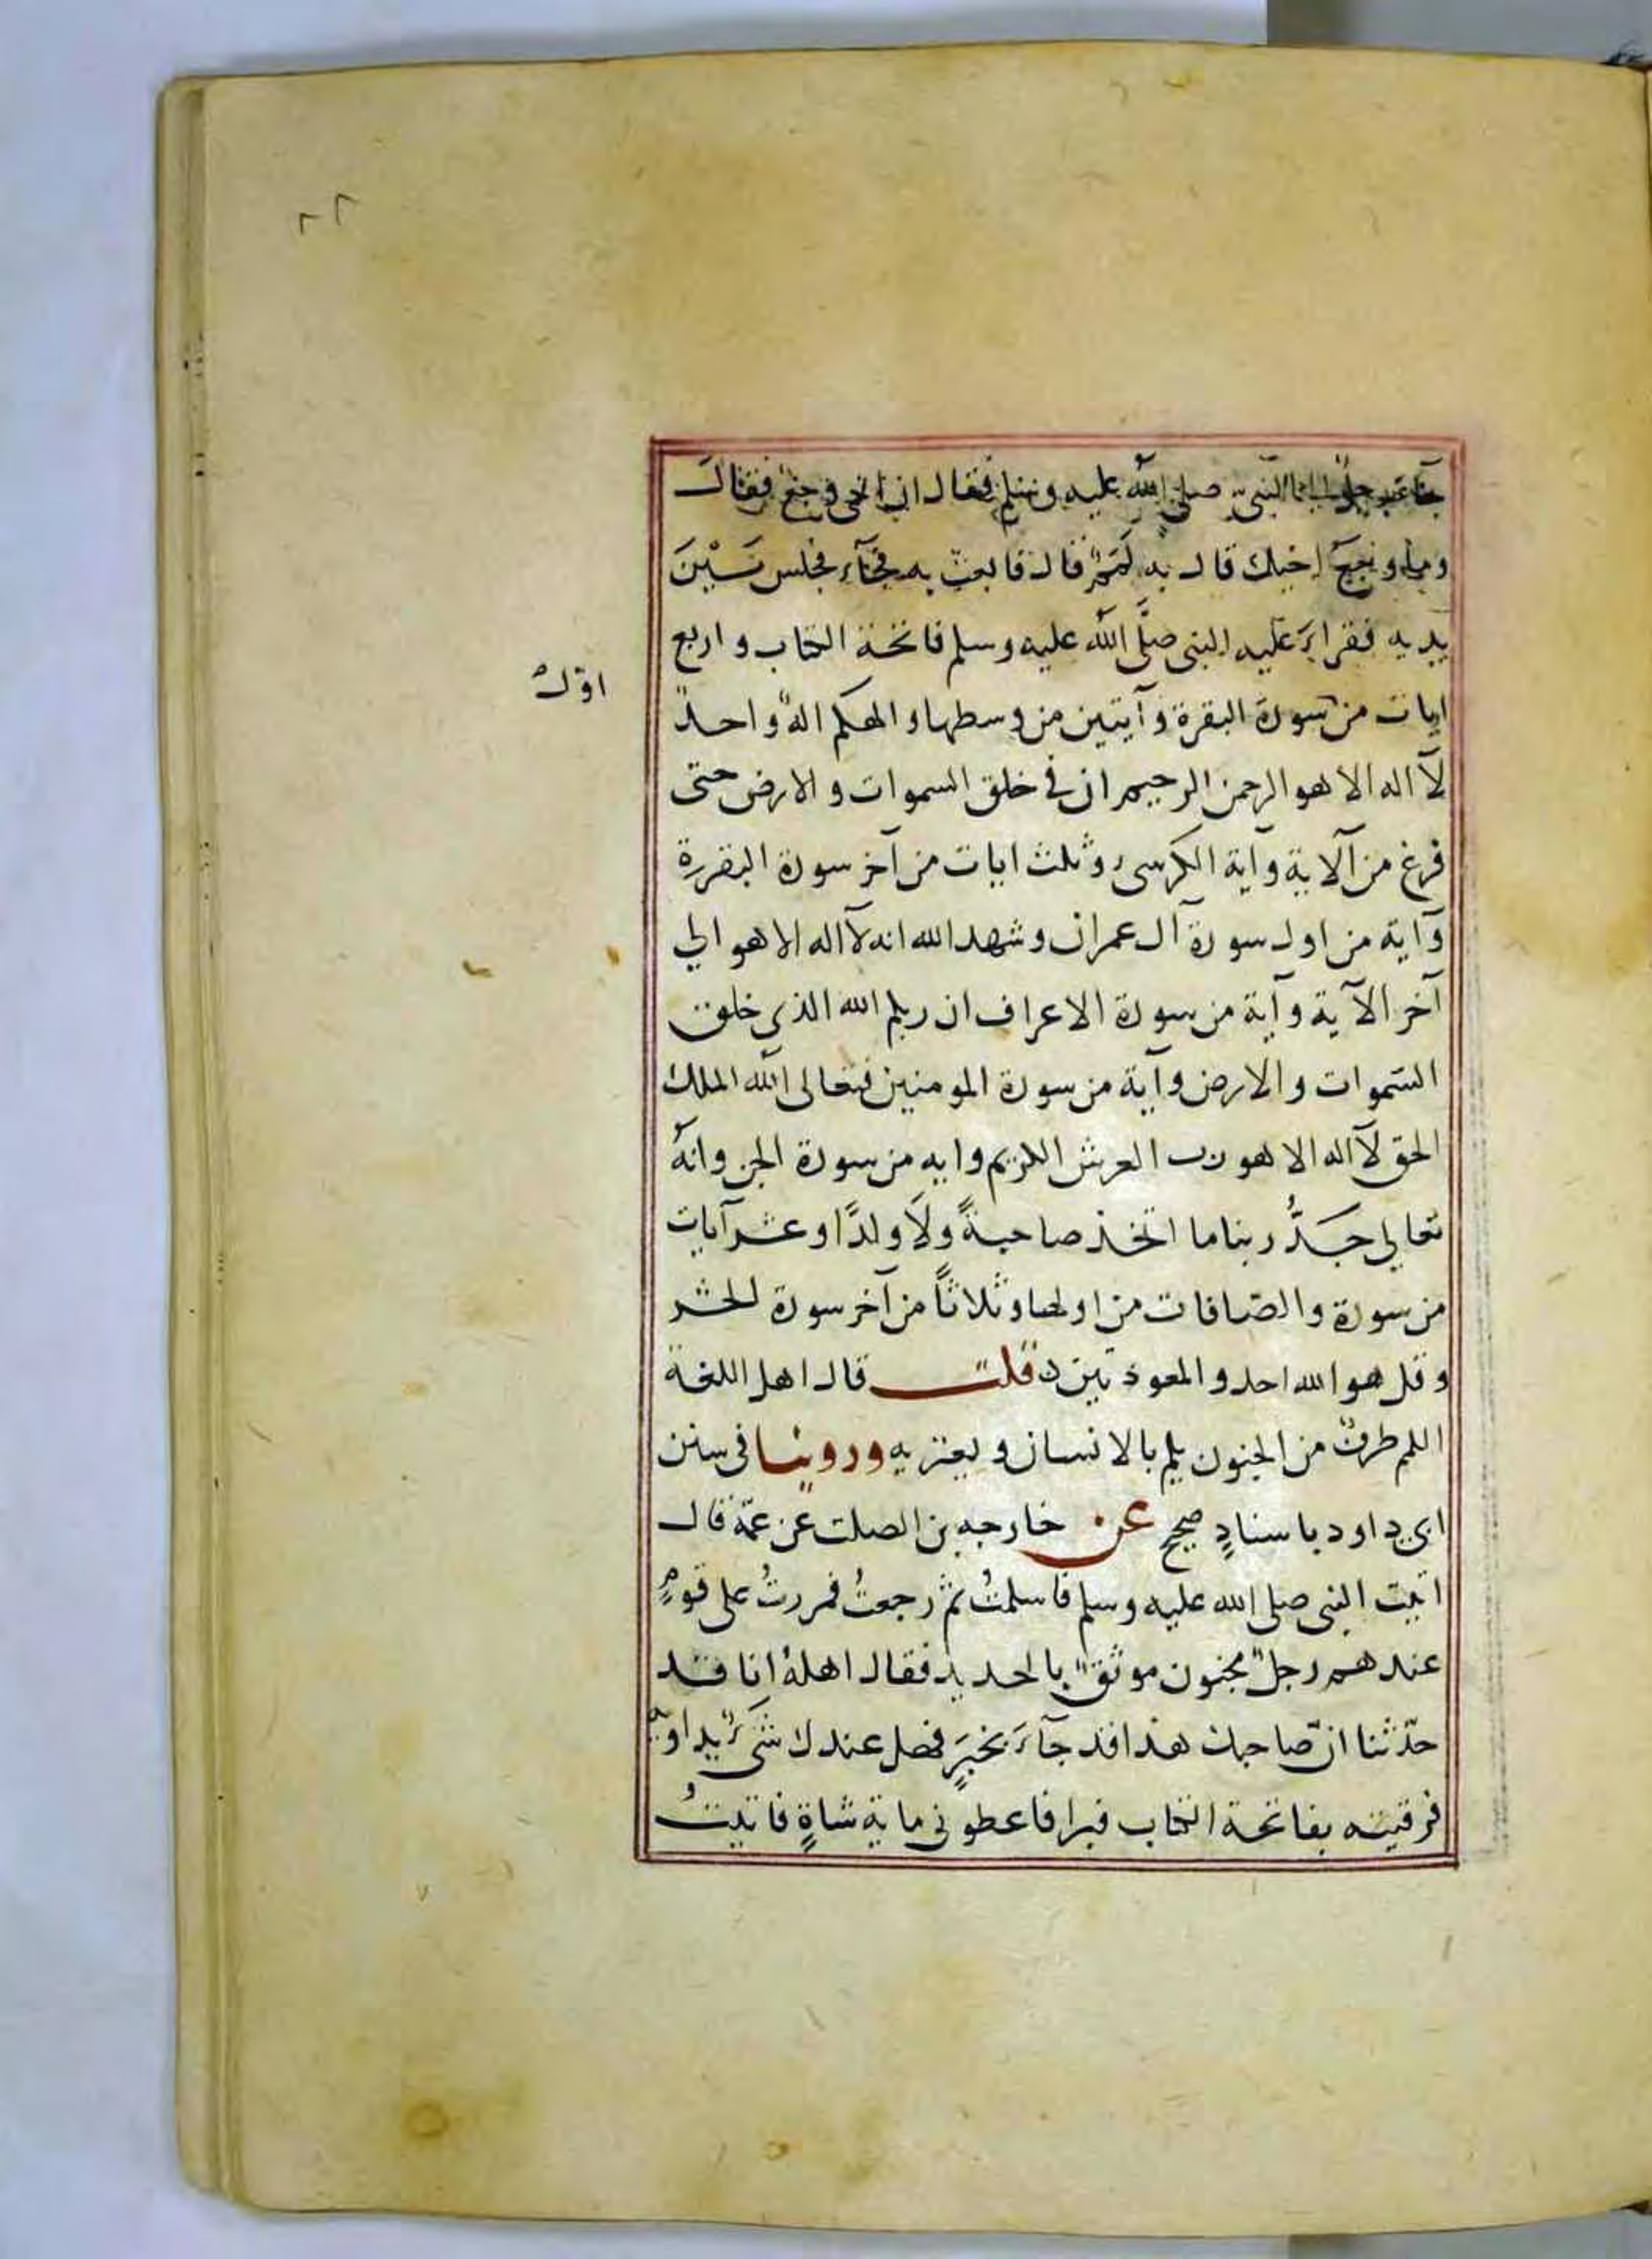 جآء رجل الى النبىّ صلى الله عليه وسلم فقال ان اخى وجع فقال
وما وجع اخيك قال به لمم قال فابعث به فجآء فجلس بَيْنَ
يديه فقراءَ عليه النبى صلَّى الله عليه وسلم فاتحة الكتاب واربع
ايات من سورة البقرة وآيتين من وسطها والهكم الهٌ واحدٌ
لآ اله الا هو الرحمن الرحيم ان فى خلق السموات والارض حتى
فرغ من آلاية وآية الكرسى وثلث ايات من آخر سورة البقرة
وآية من اول سورة آل عمران وشهد الله انه لآ اله الا هو الي
آخر الآية وآية من سورة الاعراف ان ربكم الله الذى خلق
السّموات والارض وآية من سورة المومنين فتعالى الله الملك
الحق لآ اله الا هو رب العرش الكريم وايه من سورة الجن وانهُ
تعالي جَدُّ ربنا ما اتخذ صاحبةً ولاَ ولدًا وعشر آيات
من سورة والصّافات من اولها وثلاثاً من آخر سورة الحشر
وقل هو الله احد والمعوذتين قلت قال اهل اللغة
اللمم طرفٌ من الجنون يلم بالانسان ويعتريه وروينا فى سنن
ابى داود باسنادٍ صحيحٍ عن خارجه بن الصلت عن عمّه قال
اتيت النبى صلى الله عليه وسلم فاسلمتُ ثمّ رجعتُ فمررتُ على قومٍ
عندهم رجلٌ مجنون موثقٌ بالحديد فقال اهلهُ انا قد
حدّثنا انّ صاحبك هذا قد جآءَ بخيرٍ فهل عندك شىءٌ يداويه
فرقيته بفاتحة الكتاب فبرا فاعطونى ماية شاةٍ فاتيتُ
اوّل
٢٢